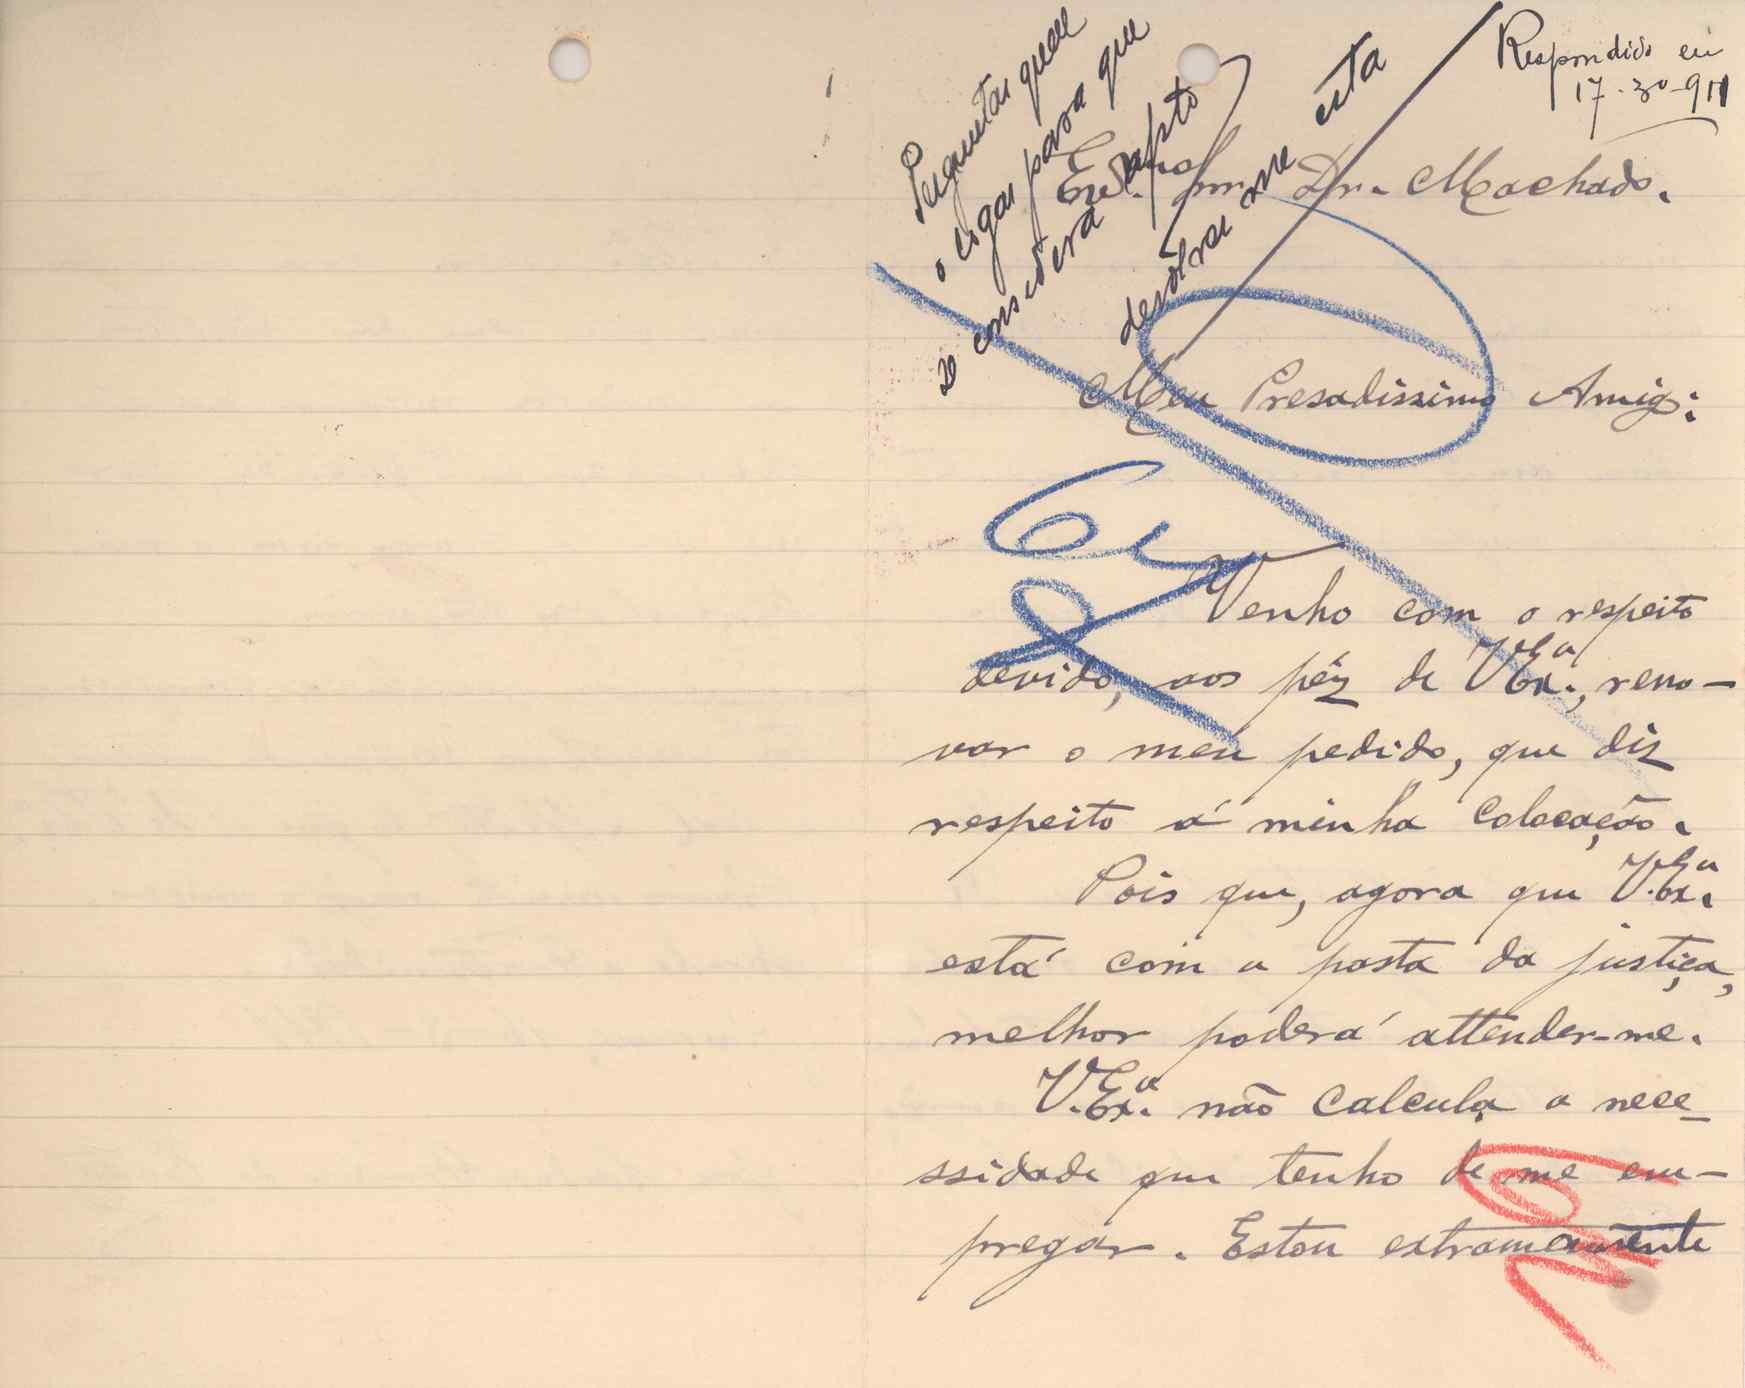 Respondido em
17-30-911
Perguntar quae
o logar para que
se considera apto
desolver me esta
Exmo. Snr. Dr. Machado.
Meu Presadissimo Amigo:
Venho com o respeito
devido, aos péz de V. Exa., reno-
var o meu pedido, que diz
respeito á minha Colocação.
Pois que, agora que V. Exa.
está com a pasta da justiça,
melhor poderá attender-me.
V. Exa. não Calcula a nece-
ssidade que tenho de me em-
pregar. Estou extramamente